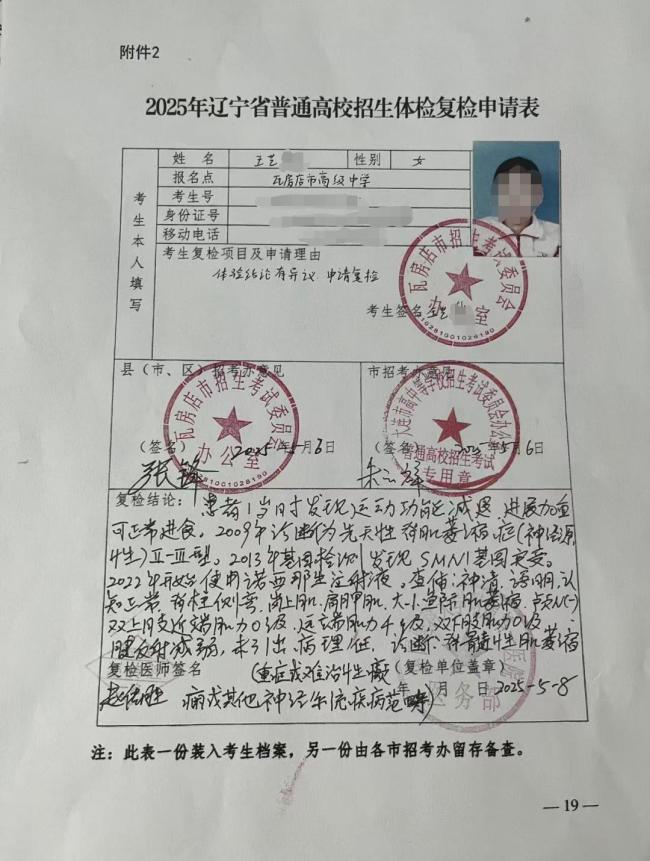 附件2
2025年辽宁省普通高校招生体检复检申请表
考生本人填写
姓 名 王艺 性别 女
报名点 瓦房店市高级中学
考生号
身份证号
移动电话
考生复检项目及申请理由
体验结论有异议，申请复检
考生签名 王艺
瓦房店市招生考试委员会
办公室
210281001026190
县（市、区）招考办意见
瓦房店市招生考试委员会
办公室
210281001026190
（签名） 2025年5月6日
张锋
市招考办意见
大连市高中等学校招生考试委员会办公室
普通高校招生考试
专用章
（签名） 2025年5月6日
复检结论：患者1岁时发现运动功能减退，进展加重
可正常进食。2009年诊断为先天性脊肌萎缩症（神经源
性）II-III型。2013年基因检测发现SMN1基因突变。
2022年开始使用诺西那生注射液。查体：神清，语明，认
知正常，脊柱侧弯，岗上肌、肩胛肌、大小鱼际肌萎缩，
双上肢近端肌力0级，远端肌力4级，双下肢肌力0级，
腱反射减弱，未引出病理征。诊断：脊髓性肌萎缩
复检医师签名 （重症或难治性癫 复检单位盖章）
年 月 日 2025-5-8
痫或其他神经系统疾病范畴）
医务部
注：此表一份装入考生档案，另一份由各市招考办留存备查。
— 19 —